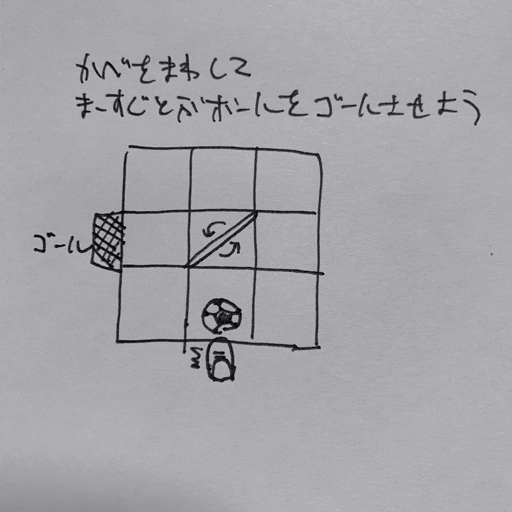 かべをまわして
まーすぐとぶボールをゴールさせよう
ゴール